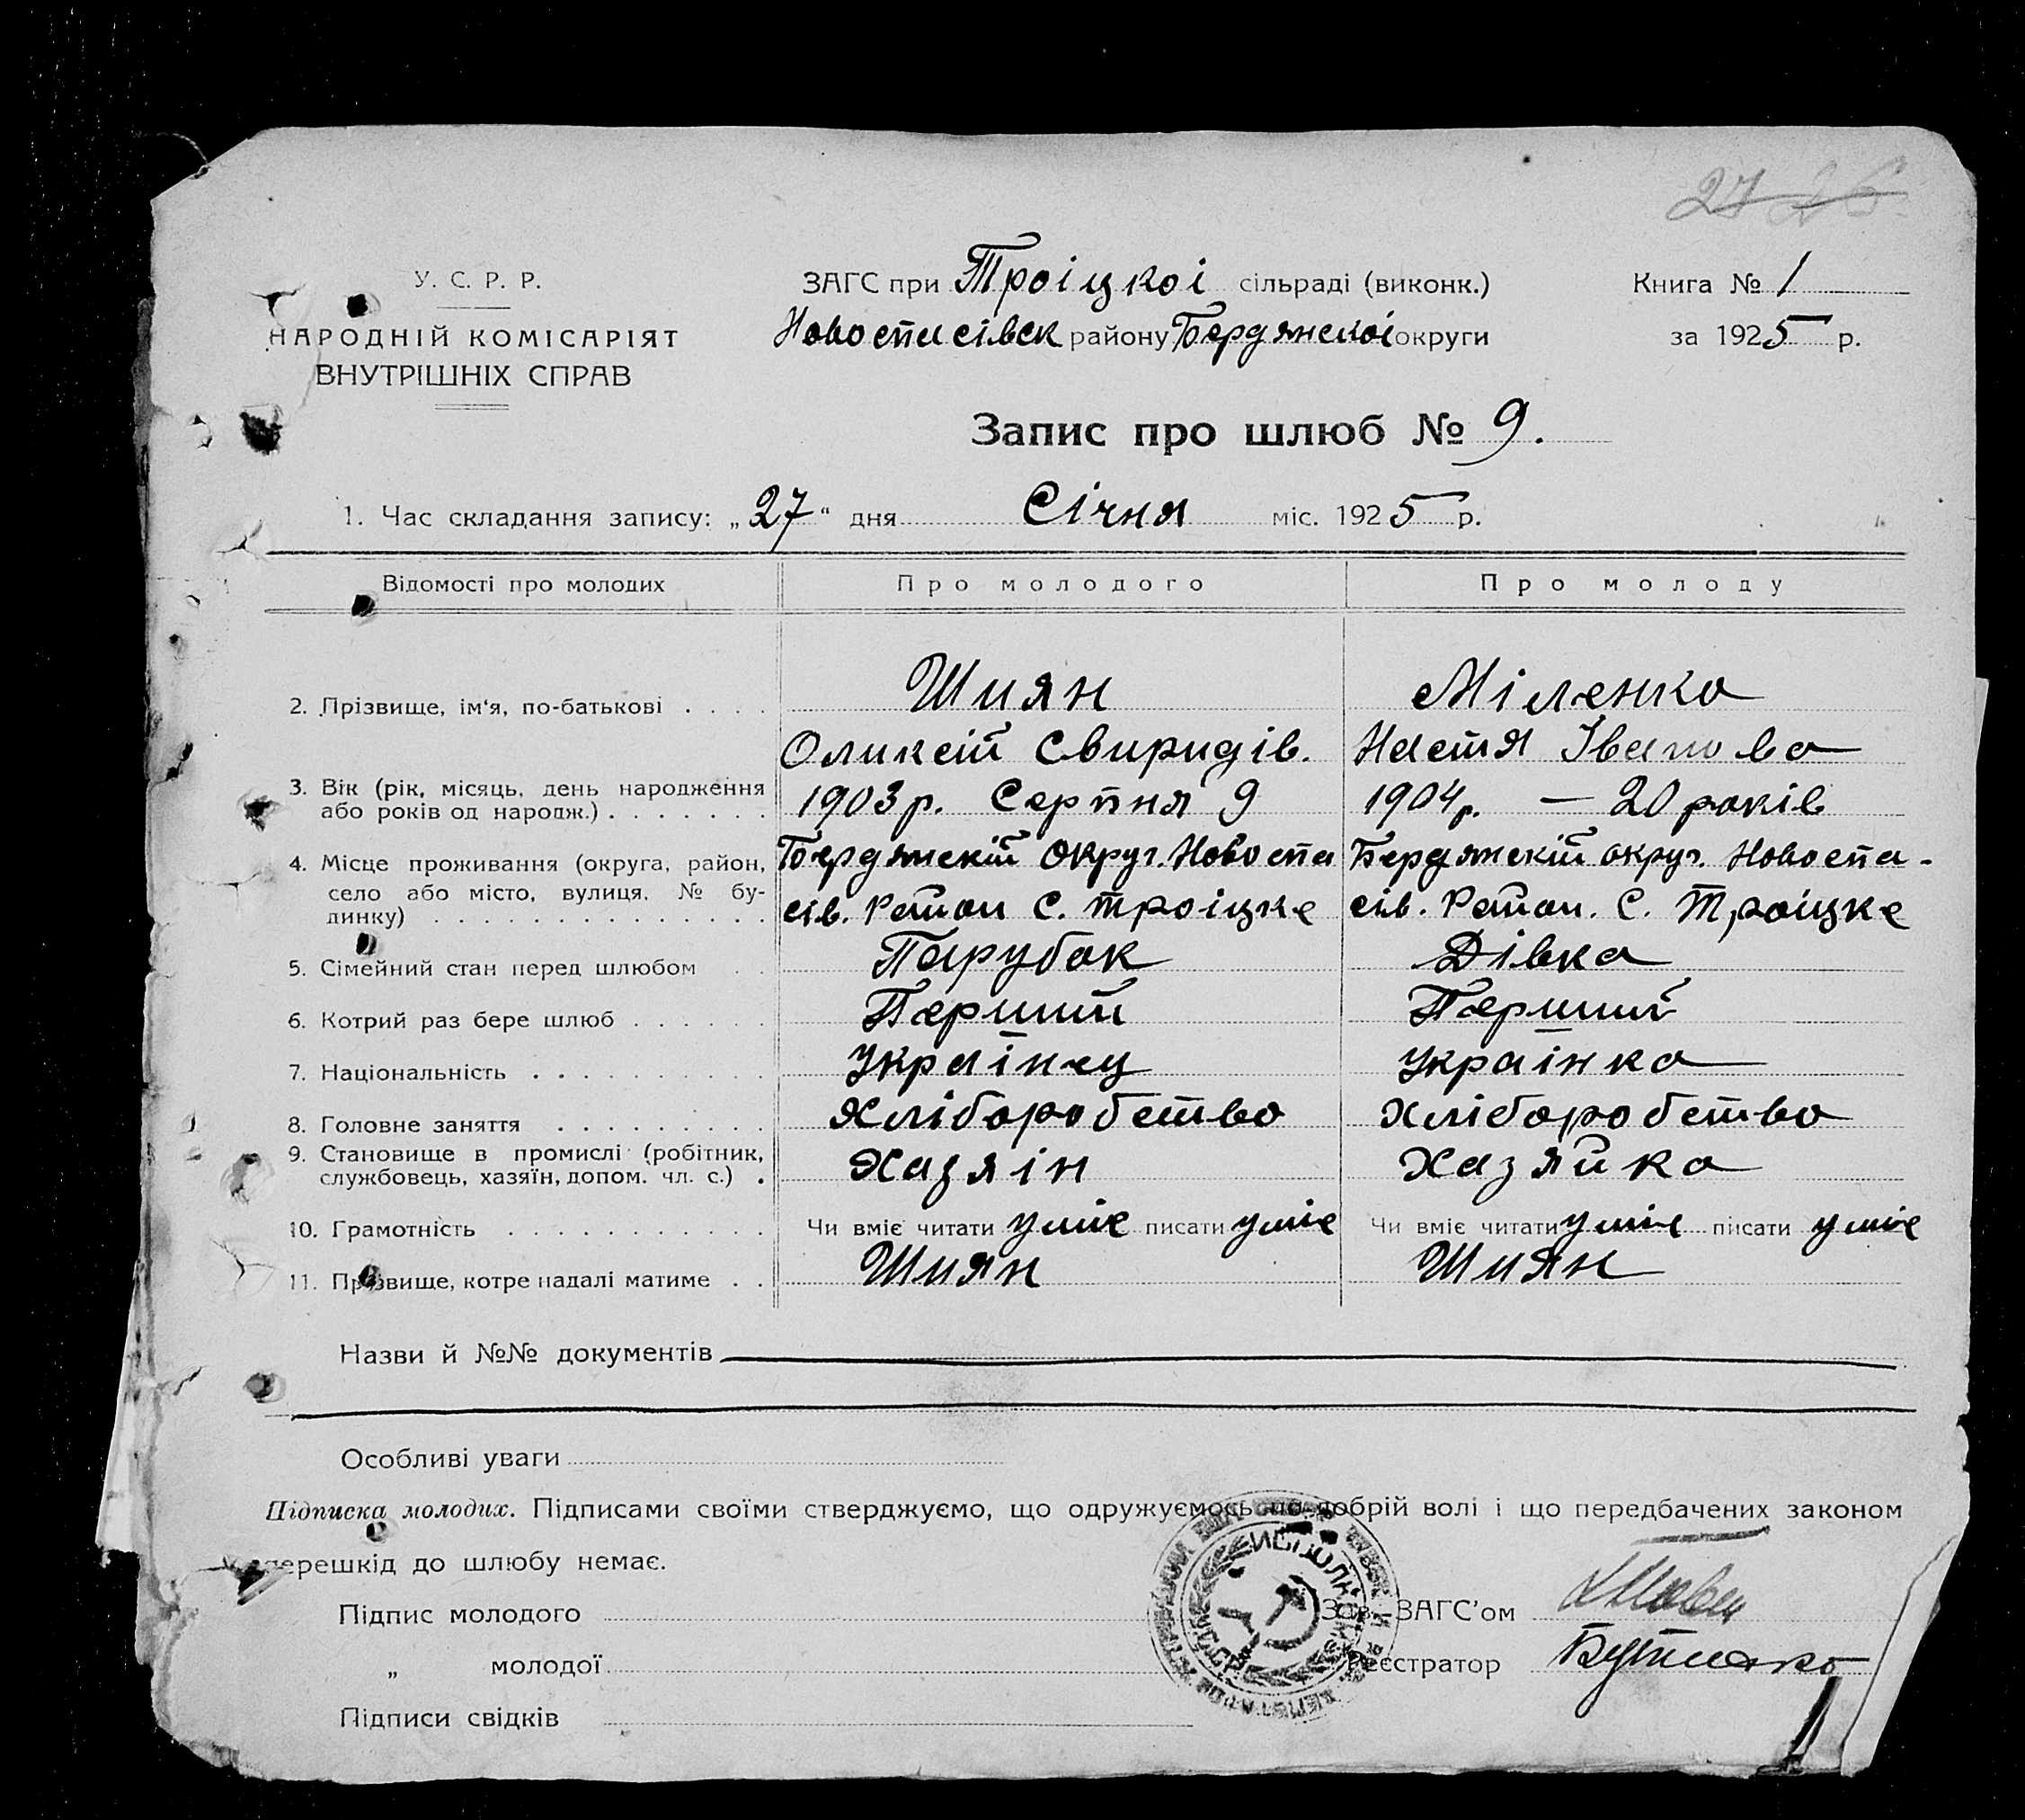 27 26
У. С. Р. Р.
НАРОДНІЙ КОМІСАРІЯТ
ВНУТРІШНІХ СПРАВ
ЗАГС при Троіцкоі сільраді (виконк.)
Новоспасівск району Бердянскоі округи
Книга № 1
за 1925 р.
Запис про шлюб № 9.
1. Час складання запису: „27“ дня Січня міс. 1925 р.
Відомості про молодих Про молодого Про молоду
2. Прізвище, ім‘я, по-батькові . . . . Шиян Міленко
Оликсій Свиридів. Настя Іванова
3. Вік (рік, місяць, день народження
або років од народж.) . . . . . . . 1903 р. Серпня 9 1904 р. — 20 років
4. Місце проживання (округа, район, Бердянскій Округ. Новоспа Бердянскій округ. Новоспа-
село або місто, вулиця, № бу-
динку) . . . . . . . . . . . . . . . сів. Район С. Троіцке сів. Район. С. Троіцке
5. Сімейний стан перед шлюбом . . Парубок Дівка
6. Котрий раз бере шлюб . . . . . . Перший Перший
7. Національність . . . . . . . . . . Украінец Украінка
8. Головне заняття . . . . . . . . . Хліборобство Хліборобство
9. Становище в промислі (робітник,
службовець, хазяїн, допом. чл. с.) . Хазяін Хазяйка
10. Грамотність . . . . . . . . . . . Чи вміє читати уміє писати уміє Чи вміє читати уміє писати уміє
11. Прізвище, котре надалі матиме . . Шиян Шиян
Назви й №№ документів
Особливі уваги
Підписка молодих. Підписами своїми стверджуємо, що одружуємось по добрій волі і що передбачених законом
перешкід до шлюбу немає.
Підпис молодого
Зав. ЗАГС’ом
„ молодої
Реєстратор
Підписи свідків
ИСПОЛКОМ
УССР